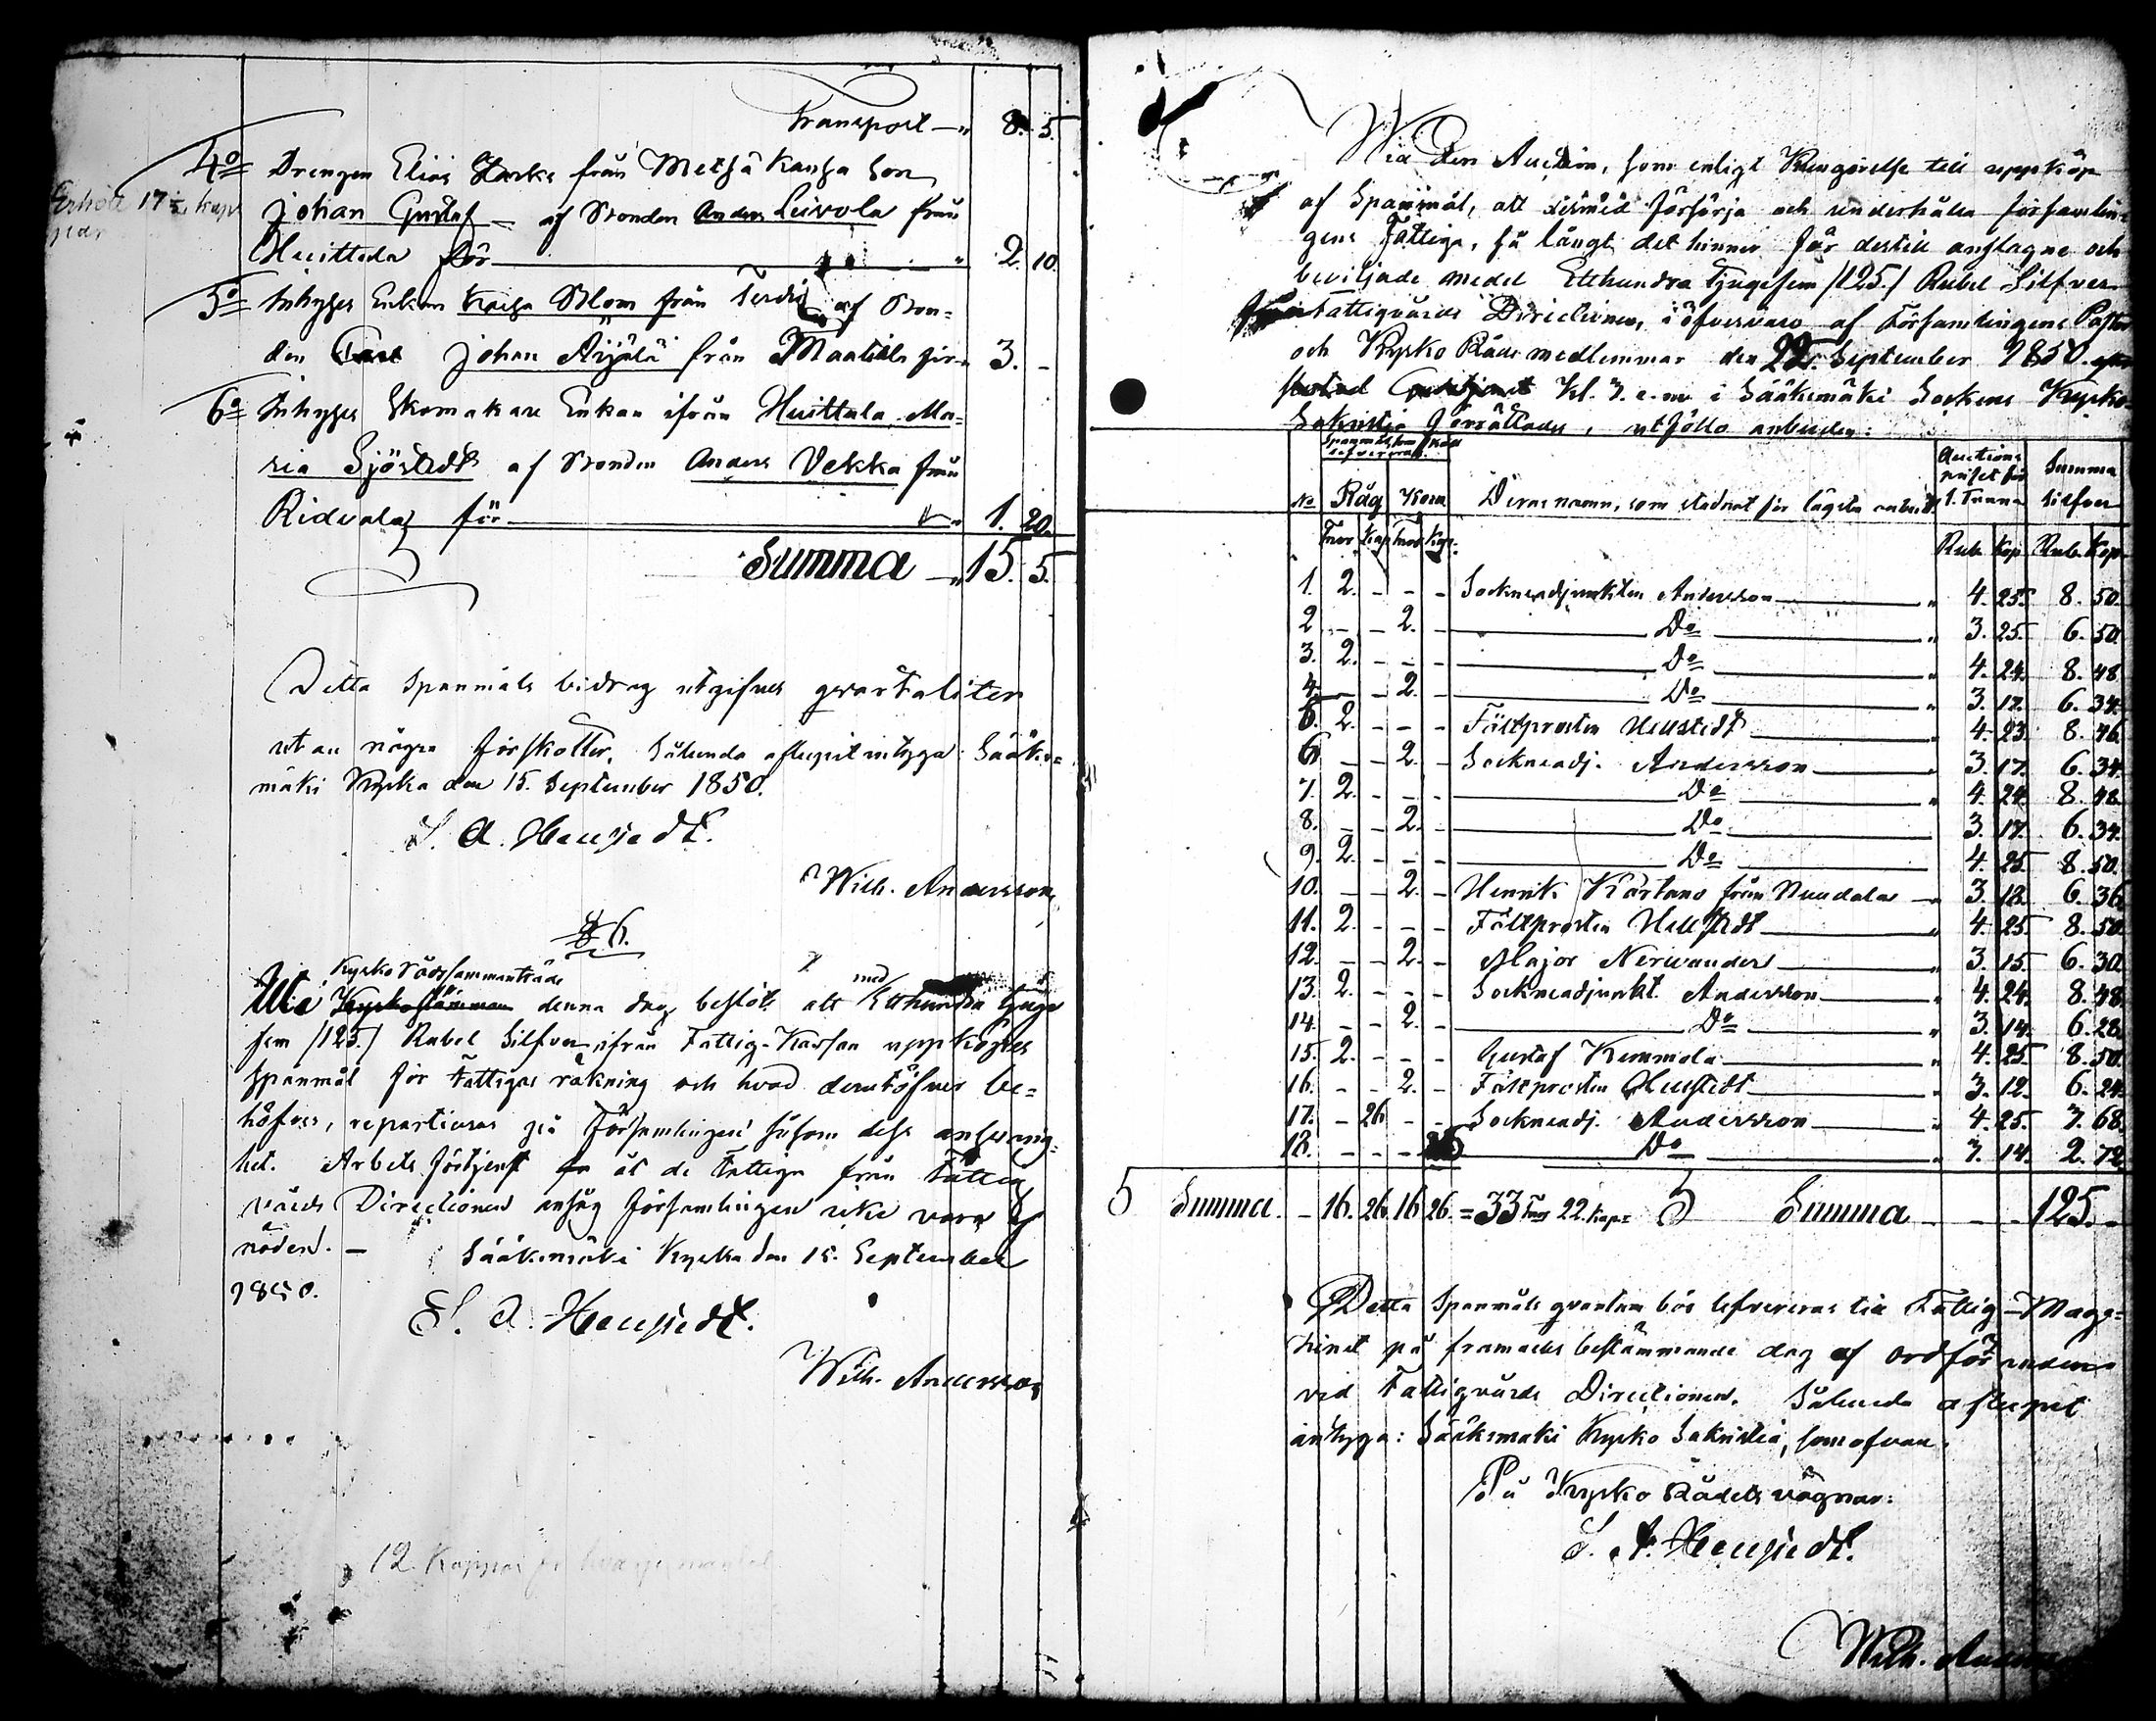 Transport — " 8. 5.
4º Drengen Elias från Metsäkansa son
Erhöll 17½ kap
Johan Gustaf — af Bonden Anders Leivola från
Huittula för — " 2. 10.
5º Inhyses Enkan Kaisa Blom från af Bon-
den Johan Äijälä från Maatiala för " 3. –
6º Inhyses Skomakare Enkan ifrån Huittula, Ma-
ria Sjöstedt af Bonden Anders Vekka från
Ridvala för — " 1. 20.
Summa — " 15. 5.
Detta Spanmåls bidrag utgifves qvartaliter
utan några förskotter. Sålunda aflupit intyga: Sääks-
mäki Kyrka den 15. September 1850.
S. A. Hellstedt.
Wilh. Andersson
§ 6.
Kyrko rådssammanträde
med
Wid Kyrkostämman denna dag beslöts att Etthundra tjuge
fem /125/ Rubel Silfver ifrån Fattig-Kassan uppköpes
Spanmål för Fattigas räkning och hvad derutöfver be-
höfves, reparticeras på Församlingen såsom dess
Arbets förtjenst åt de Fattiga från Fattig
vårds Directionen ansåg församlingen icke vara af
nöden. — Sääksmäki Kyrka den 15. September
1850.
S. A. Hellstedt.
Wilh. Andersson
12 Kappar
Wid den Auction, som enligt Kungörelse till uppköp
af Spanmål, att dermed försörja och underhålla församlin-
gens Fattiga, så långt det hinner för dertill anslagne och
beviljade medel Etthundra Tjugefem /125./ Rubel Silfver
Fattigvårds Directionen, i öfvervaro af Församlingens Pastor
och Kyrko Råds medlemmar den 22. September 1850.
Kl. 3. e. m. i Sääksmäki Sockens Kyrko-
Sakristia förrättades, utföllo anbuden:
Spanmål som skall lefvereras. Auctions priset för Summa
No Råg Korn Deras namn, som stadnat för lägsta anbud. 1. Tunna Silfver
Tnor Kap Tnor Kap. Rub. Kop. Rub. Kop.
1. 2. – – – Sockneadjunkten Andersson — " 4. 25. 8. 50.
2 – – 2. – Do — " 3. 25. 6. 50.
3. 2. – – – Do — " 4. 24. 8. 48.
4. – – 2. – Do — " 3. 17. 6. 34.
5. 2. – – – Fältprosten Hellstedt — " 4. 23. 8. 46.
6 – – 2. – Socknead j. Andersson — " 3. 17. 6. 34.
7. 2. – – – Do — " 4. 24. 8. 48.
8. – – 2. – Do — 3. 17. 6. 34.
9. 2. – – – Do — 4. 25. 8. 50.
10. – – 2. – Henrik Kartano från — " 3. 18. 6. 36.
11. 2. – – – Fältprosten Hellstedt — " 4. 25. 8. 50.
12. – – 2. – Major Nervander — " 3. 15. 6. 30.
13. 2. – – – Sockneadjunkt. Andersson — " 4. 24. 8. 48.
14. – – 2. – Do — " 3. 14. 6. 28.
15. 2. – – – Gustaf Kemmola — " 4. 25. 8. 50.
16. – – 2. – Fältprosten Hellstedt — " 3. 12. 6. 24.
17. – 26 – – Sockneadj. Andersson — " 4. 25. 3. 68.
18. – – – 26 Do — " 3. 14. 2. 72.
Summa. – 16. 26. 16. 26. = 33 Tnor 22. kapr Summa — 125. –
Detta Spanmåls qvantum bör lefvereras till Fattig-Maga-
sinet på framdeles bestämmande dag af ordföranden
vid Fattigvårds Directionen. Sålunda aflupet
intyga: Sääksmäki Kyrko Sakristia, som ofvan.
På Kyrko Rådets vägnar:
S. A. Hellstedt.
Wilh.